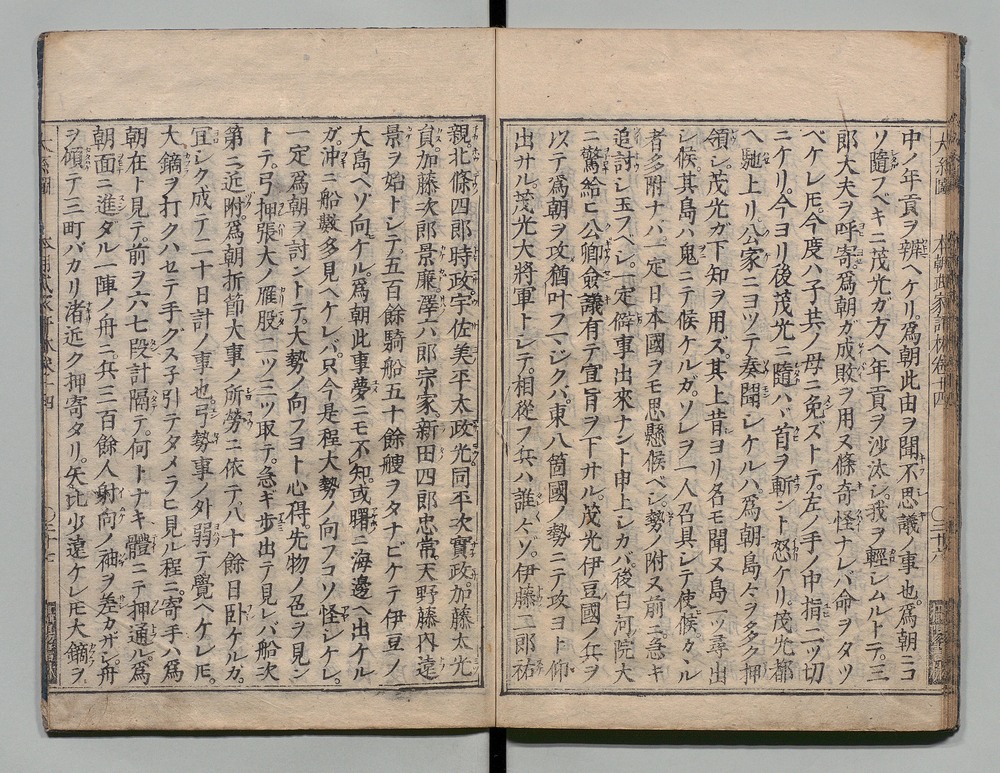 中ノ年貢ヲ辨ヘケリ。爲朝此由ヲ聞不思議ノ事也。爲朝ニコ
ソ隨フベキニ茂光ガ方ヘ年貢ヲ沙汰シ。我ヲ輕シムルトテ。三
郎大夫ヲ呼寄。爲朝ガ成敗ヲ用ヌ條奇怪ナレバ命ヲタツ
ベケレ𪜈。今度ハ子共ノ母ニ免ズトテ。左ノ手ノ中指二ツ切
ニケリ。今ヨリ後茂光ニ隨ハヾ首ヲ斬ント怒ケリ。茂光都
ヘ馳上リ。公家ニヨツテ奏聞シケルハ。爲朝島々ヲ多ク押
領シ。茂光ガ下知ヲ用ズ。其上昔ヨリ名モ聞ヌ島一ツ尋出
シ候。其島ハ鬼ニテ候ケルガ。ソレヲ一人召具シテ使候。カヽル
者多附ナバ。一定日本國ヲモ思懸候ベシ。勢ノ附ヌ前ニ。急キ
追討シ玉フベシ。一定僻事出來ナント申上シカバ。後白河院大
ニ驚給ヒ公卿僉議有テ宣旨ヲ下サル。茂光伊豆國ノ兵ヲ
以テ爲朝ヲ攻。猶叶フマジクバ。東八箇國ノ勢ニテ攻ヨト仰
出サル。茂光大將軍トシテ。相從フ兵ハ誰々ゾ。伊藤二郎祐
親。北條四郎時政。宇佐美平太政光同平次實政。加藤太光
貟。加藤次郎景廉。澤六郎宗家。新田四郎忠常。天野藤内遠
景ヲ始トシテ五百餘騎船五十餘艘ヲタナビケテ伊豆ノ
大島ヘゾ向ケル。爲朝此事夢ニモ不知。或曙ニ海邊ヘ出ケル
ガ。沖ニ船數多見ヘケレバ。只今是程大勢ノ向フコソ怪シケレ。
一定爲朝ヲ討ントテ。大勢ノ向フヨト心得。先物ノ色ヲ見ン
トテ。弓押張大ノ雁股二ツ三ツ取テ。急ギ步出テ見レバ船次
第ニ近附。爲朝折節大事ノ所勞ニ依テ八十餘日臥ケルガ。
宜シク成テ二十日計ノ事也。弓勢事ノ外弱テ覺ヘケレ𪜈。
大鏑ヲ打クハセテ手グスネ引テタメラヒ見ル程ニ。寄手ハ爲
朝在ト見テ。前ヲ六七段計隔テ。何トナキ體ニテ押通ル。爲
朝面ニ進ダル一陣ノ舟ニ。兵三百餘人射向ノ袖ヲ差カザシ。舟
ヲ傾テ三町バカリ渚近ク押寄タリ。矢比少遠ケレ𪜈大鏑ヲ